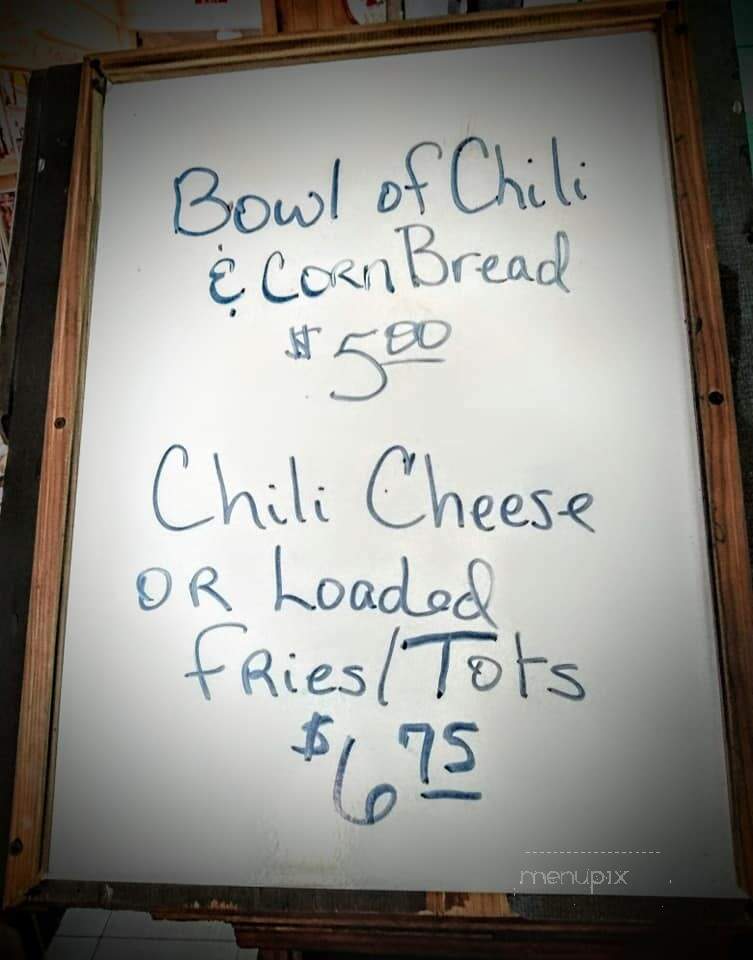 Bowl of Chili
& Corn Bread
$5.00
Chili Cheese
OR Loaded
fRies/Tots
$6.75
menupix